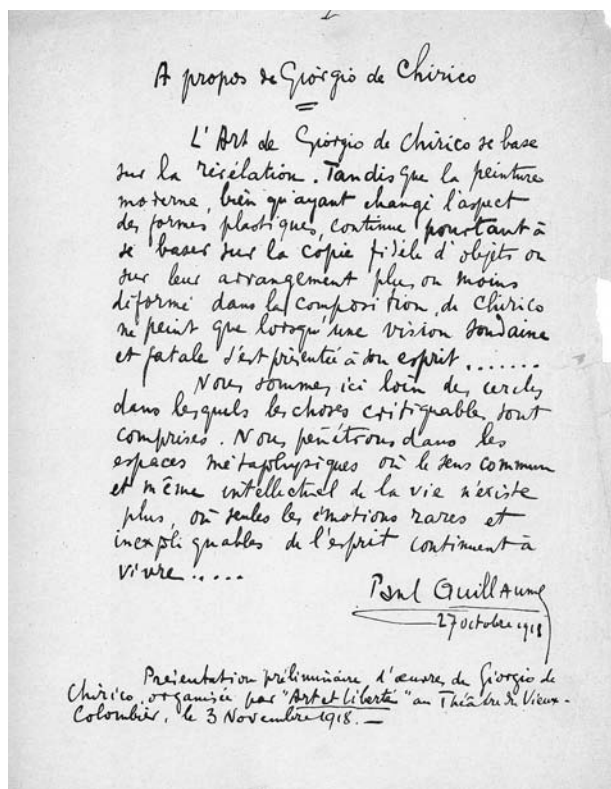 A propos de Giorgio de Chirico
L'Art de Giorgio de Chirico se base
sur la révélation. Tandis que la peinture
moderne, bien qu'ayant changé l'aspect
des formes plastiques, continue pourtant à
se baser sur la copie fidèle d'objets ou
sur leur arrangement plus ou moins
déformé dans la composition, de Chirico
ne peint que lorsqu'une vision soudaine
et fatale s'est présentée à son esprit.......
Nous sommes ici loin des cercles
dans lesquels les choses critiquables sont
comprises. Nous pénétrons dans les
espaces métaphysiques où le sens commun
et même intellectuel de la vie n'existe
plus, où seules les émotions rares et
inexpliquables de l'esprit continuent à
vivre.....
Paul Guillaume
27 octobre 1918
Présentation préliminaire d'œuvres de Giorgio de
Chirico, organisée par "Art et Liberté" au Théâtre du Vieux-
Colombier, le 3 Novembre 1918.—